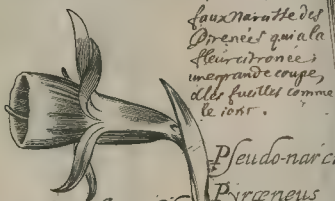 faux Narcisse des
Pirenées qui a la
fleur citronee,
une grande coupe,
& les fueilles comme
le ionc.
Pseudo-narci
Pirœneus